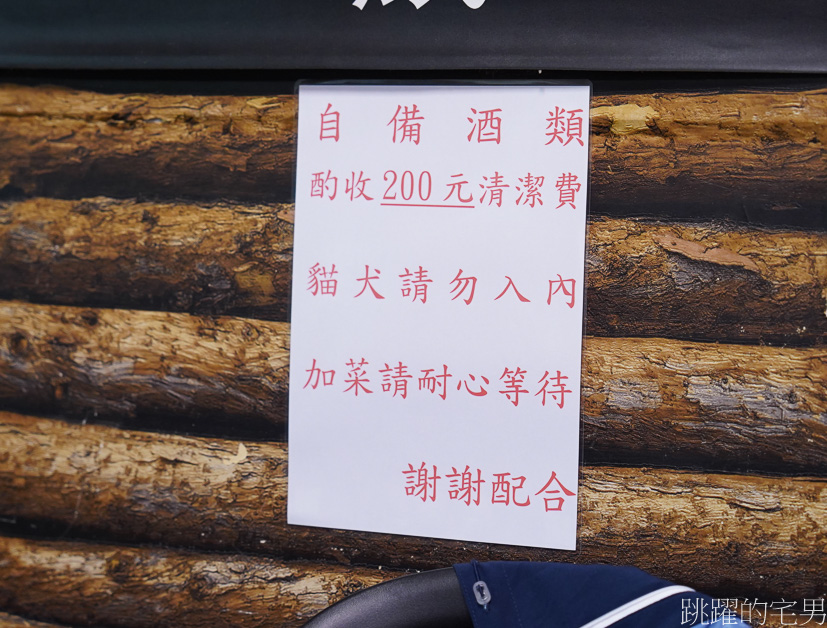 自備酒類
酌收200元清潔費
貓犬請勿入內
加菜請耐心等待
謝謝配合
跳躍的宅男